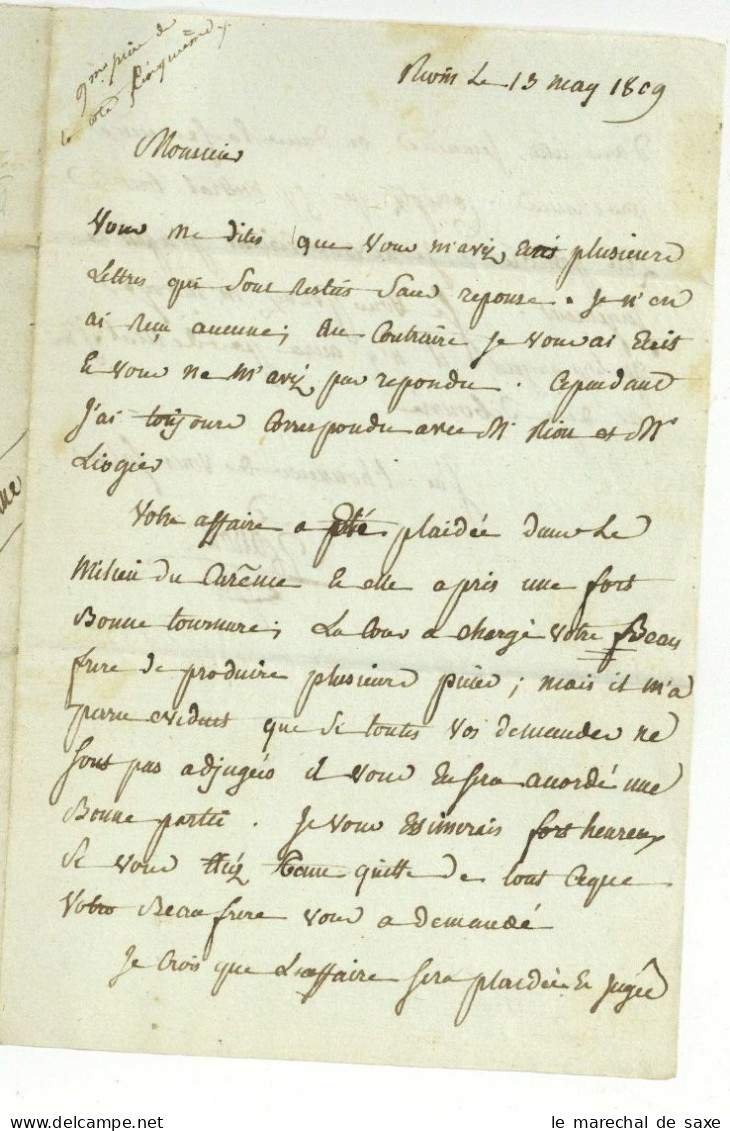 9me pièce de
la cote cinquième
Riom Le 13 may 1809
Monsieur
Vous me dites que Vous m'aviz Ecris plusieurs
Lettres qui sont Restés Sans reponse. Je n'en
ai Reçu aucune; Au Contraire Je Vous ai Ecrit
Et Vous ne m'aviz pas repondu. Cependant
J'ai toujours Correspondu avec Mr Riou et Mr
Liogier
Votre affaire a été plaidée dans Le
Milieu du Carême Et elle a pris une fort
Bonne tournure; La Cour a chargé Votre Beau
frere de produire plusieurs pièces; mais il m'a
parru evident que Si toutes Vos demandes ne
Sont pas adjugées il Vous En sera accordé une
Bonne partie. Je Vous Estimerais fort heureux
Si Vous Etiéz tenu quitte de tout Ceque
Votre Beau frere Vous a demandé
Je Crois que L'affaire Sera plaidée Et Jugée
le marechal de saxe